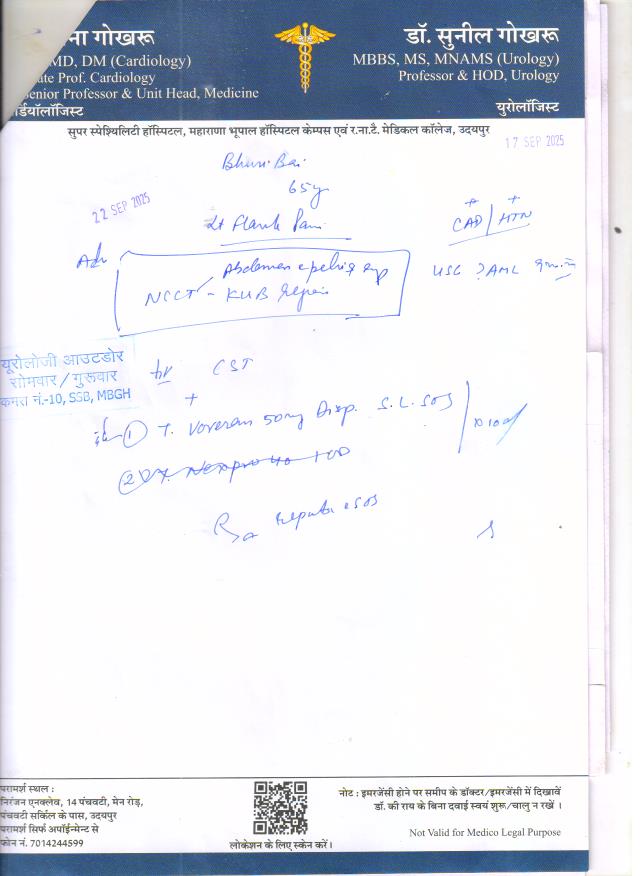 ना गोखरू
MD, DM (Cardiology)
ate Prof. Cardiology
enior Professor & Unit Head, Medicine
र्डियॉलॉजिस्ट
डॉ. सुनील गोखरू
MBBS, MS, MNAMS (Urology)
Professor & HOD, Urology
युरोलॉजिस्ट
सुपर स्पेश्यिलिटी हॉस्पिटल, महाराणा भूपाल हॉस्पिटल केम्पस एवं र.ना.टै. मेडिकल कॉलेज, उदयपुर
17 SEP 2025
Bhuri Bai
65y
22 SEP 2025
Lt Flank Pain
CAD / HTN
Adv
Abdomen
NCCT - KUB
USG ? AML
यूरोलोजी आउटडोर
सोमवार / गुरूवार
कमरा नं.-10, SSB, MBGH
CST
+
① T. Voveran 50mg Disp. S.L. SOS
②
SOS
परामर्श स्थल :
निरंजन एनक्लेव, 14 पंचवटी, मेन रोड़,
पंचवटी सर्किल के पास, उदयपुर
परामर्श सिर्फ अपॉईन्मेण्ट से
फोन नं. 7014244599
लोकेशन के लिए स्केन करें।
नोट : इमरजेंसी होने पर समीप के डॉक्टर/इमरजेंसी में दिखावें
डॉ. की राय के बिना दवाई स्वयं शुरू/चालु न रखें ।
Not Valid for Medico Legal Purpose